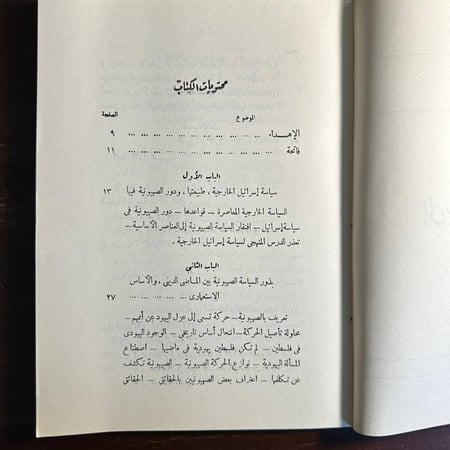 محتويات الكتاب
الموضوع الصفحة
الإهداء ... ... ... ... ... ... ... ... ... ... ٩
فاتحة ... ... ... ... ... ... ... ... ... ... ١١
الباب الأول
سياسة إسرائيل الخارجية ، طبيعتها ، ودور الصهيونية فيها ١٣
السياسة الخارجية المعاصرة – قواعدها – دور الصهيونية فى
سياسة إسرائيل – افتقار السياسة الصهيونية إلى العناصر الأساسية –
تعذر الدرس المنهجى لسياسة إسرائيل الخارجية .
الباب الثانى
بذور السياسة الصهيونية بين الماضى الدينى ، والأساس
الاستعمارى ... ... ... ... ... ... ٢٧
تعريف بالصهيونية – حركة تسعى إلى عزل اليهود عن أممهم –
محاولة تأصيل الحركة – انتحال أساس تاريخى – الوجود اليهودى
فى فلسطين – لم تكن فلسطين يهودية فى ماضيها – اصطناع
المسألة اليهودية – نوازع الحركة الصهيونية – الصهيونية تكشف
عن تكلفها – اعتراف بعض الصهيونيين بالحقائق – الحقائق